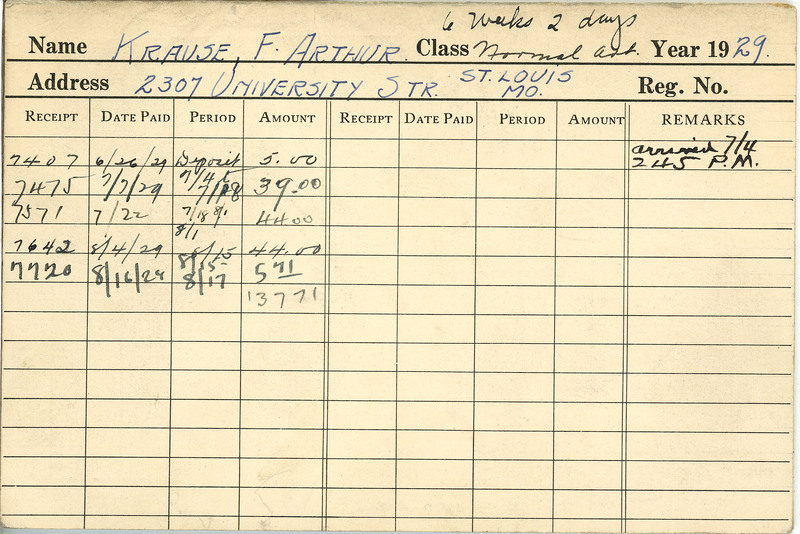 6 Weeks 2 days
Name KRAUSE, F. ARTHUR. Class Normal Art. Year 1929.
Address 2307 UNIVERSITY STR. ST. LOUIS MO. Reg. No.
RECEIPT DATE PAID PERIOD AMOUNT RECEIPT DATE PAID PERIOD AMOUNT REMARKS
7407 6/26/29 Deposit 5.00 arrived 7/4
7475 7/7/29 7/4 7/18 39.00 245 P.M.
7571 7/22 7/18 8/1 44.00
7642 8/4/29 8/1 8/15 44.00
7720 8/16/29 8/15 8/17 5 71
137 71